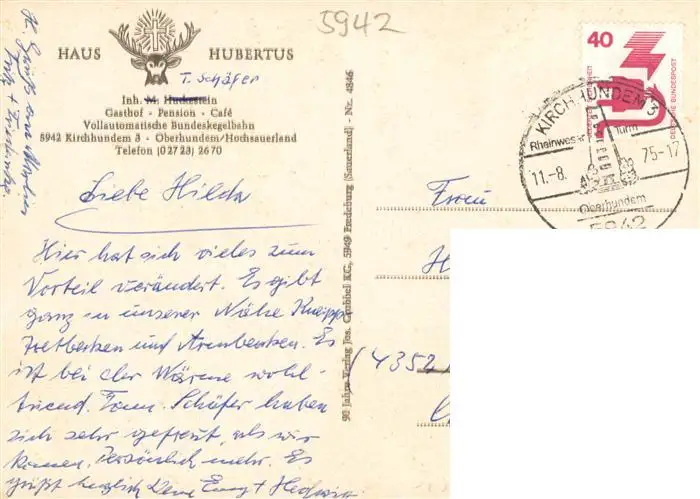 5942
HAUS HUBERTUS
T. Schäfer
Inh. M. Huckestein
Gasthof - Pension - Café
Vollautomatische Bundeskegelbahn
5942 Kirchhundem 3 - Oberhundem/Hochsauerland
Telefon (02723) 2670
Liebe Hilda
Hier hat sich vieles zum
Vorteil verändert. Es gibt
ganz in unserer Nähe Kneipp
Tretbecken und Armbecken. Es
ist bei der Wärme wohl-
tuend. Fam. Schäfer haben
sich sehr gefreut, als wir
kamen. Persönlich mehr. Es
grüßt herzlich Deine + Hedwig
H. Gruß von
Fritz +
90 Jahre Verlag Jos. Grobbel KG, 5949 Fredeburg (Sauerland) - Nr. 4846
40
DEUTSCHE BUNDESPOST
KIRCHHUNDEM 3
Rheinweser Turm
11.-8. 75-17
Oberhundem
5942
Frau
H
4352